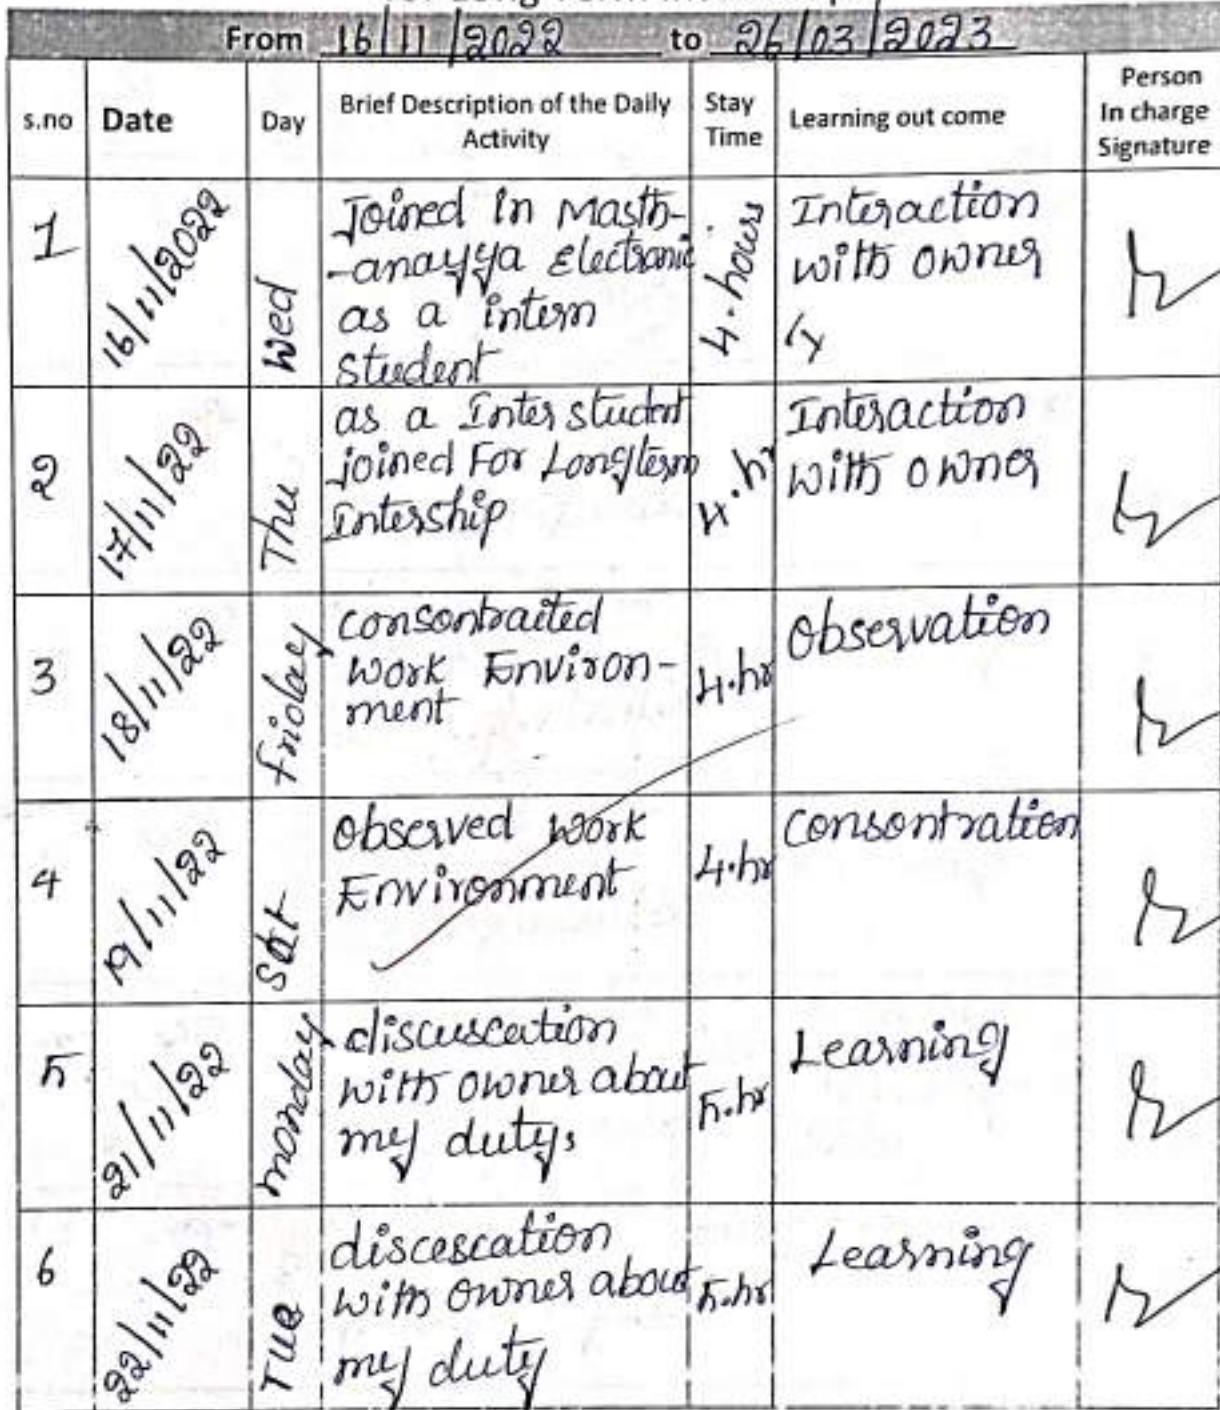 From 16/11/2022 to 26/03/2023
s.no Date Day Brief Description of the Daily Activity Stay Time Learning out come Person In charge Signature
1 16/11/2022 Wed
Joined in Masth-
-anayya Electronic
as a intern
student
4.hours
Interaction
with owner
2 17/11/22 Thu
as a Inter student
joined For Longterm
Intership
4.hr
Interaction
with owner
3 18/11/22 friday
consontraited
work Environ-
ment
4.hr
observation
4 19/11/22 Sat
observed work
Environment
4.hr
consontration
5 21/11/22 monday
discuscation
with owner about
my dutys
5.hr
Learning
6 22/11/22 Tue
discescation
with owner about
my duty
5.hr
Learning